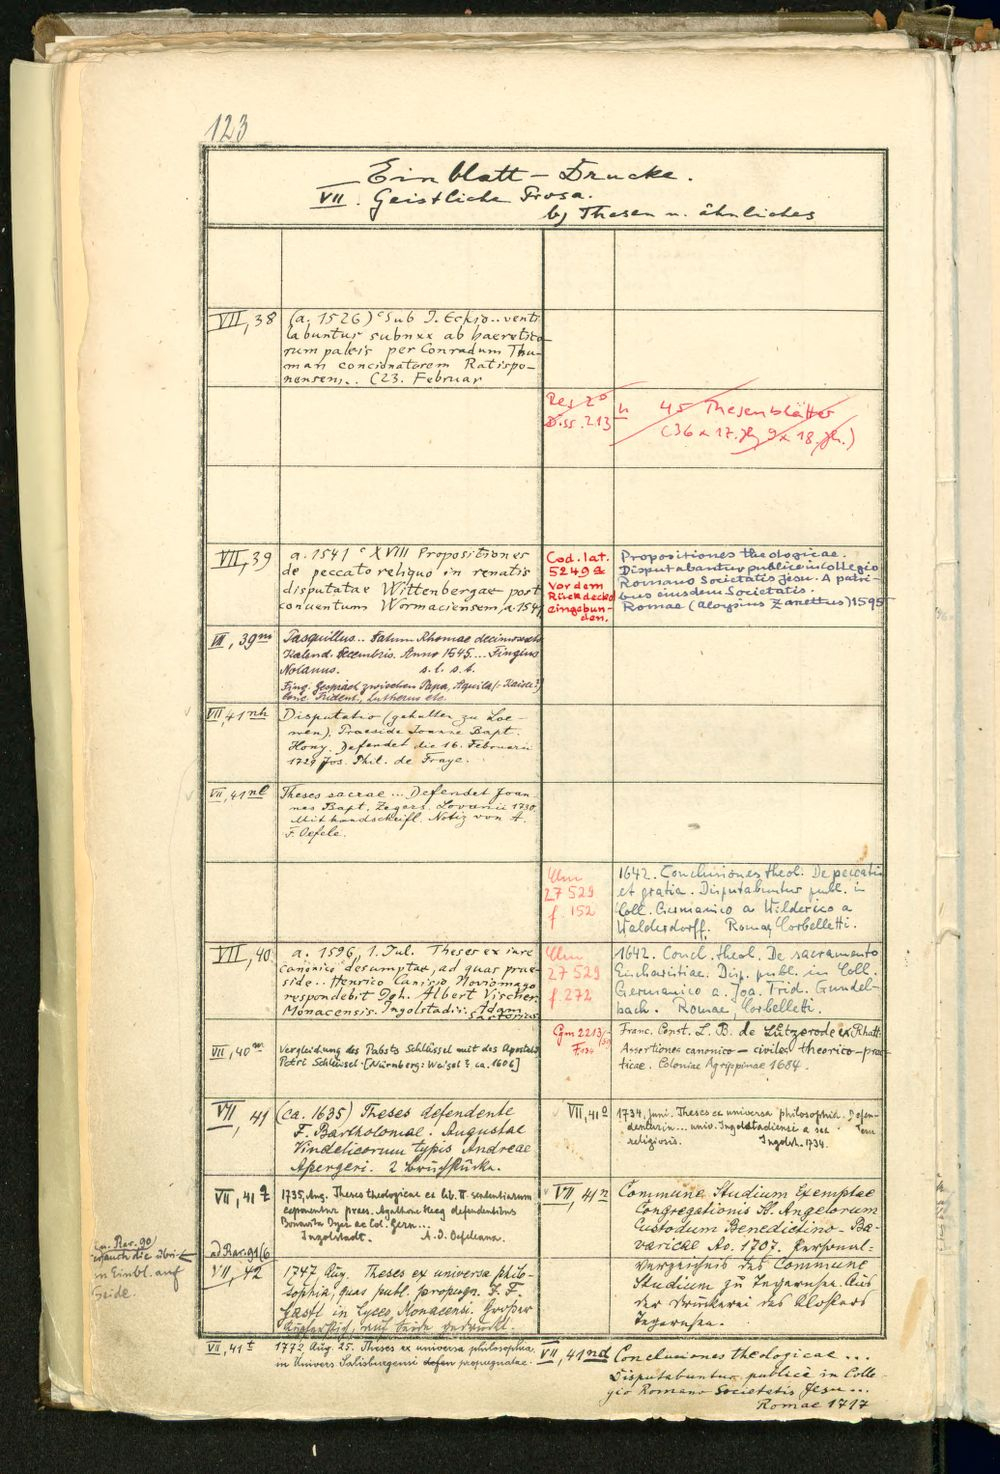 123
Einblatt-Drucke.
VII. Geistliche Prosa.
b) Thesen u. ähnliches
VII, 38
(a. 1526) "Sub J. Eckio.. venti
labuntur subnxx ab haeretico
rum paleis per Conradum Thu-
man concionatorem Ratispo-
nensem... (23. Februar
Res 2°
Diss. 213
45 Thesenblätter
(36 x 17. Jh, 9 x 18. Jh.)
VII, 39
a. 1541 "XVIII Propositiones
de peccato reliquo in renatis
disputatae Wittenbergae post
conuentum Wormaciensem, a. 1541
Cod. lat.
5249
vor dem
Rückdeckel
eingebun-
den.
Propositiones theologicae.
Disputabantur publice in Collegio
Romano Societatis Jesu. A patri-
bus eiusdem Societatis.
Romae (Aloysius Zanettus) 1595
VII, 39m
Pasquillus... Datum Rhomae decimosexto
Kalend. Decembris. Anno 1545...
Nolanus. s. l. s. t.
Fing. Gespräch zwischen Papa, Aquila (: Kaiser?)
Conc. Trident., Lutherus etc.
VII, 41nh
Disputatio (gehalten zu Loe-
wen). Praeside Joanne Bapt.
Hony. Defendet die 16. Februarii
1729 Jos. Phil. de Fraye.
VII, 41nl
Theses sacrae ... Defendet Joan-
nes Bapt. Zegers. Lovanii 1730
Mit handschriftl. Notiz von A.
F. Oefele.
Clm
27529
f. 152
1642. Conclusiones theol. De peccatis
et gratia. Disputabuntur publ. in
Coll. Germanico a Wilderico a
Walderdorff. Romae, Corbelletti.
VII, 40
a. 1596, 1. Jul. Theses ex iure
canonico desumptae, ad quas prae-
side.. Henrico Canisio Noviomago
respondebit Joh. Albert Vischer
Monacensis. Ingolstadii: Adam
Sartorius
Clm
27529
f. 272
1642. Concl. theol. De sacramento
Eucharistiae. Disp. publ. in Coll.
Germanico a. Joa. Frid. Gundel-
bach. Romae, Corbelletti.
VII, 40m
Vergleichung des Pabsts Schlüssel mit des Apostels
Petri Schlüssel. [Nürnberg: Weigel? ca. 1606]
Cgm 2213/
Franc. Const. L. B. de Lützerode ex Rhatt.
Assertiones canonico-civiles theorico-prac-
ticae. Coloniae Agrippinae 1684.
VII, 41
(ca. 1635) Theses defendente
F. Bartholomae. Augustae
Vindelicorum typis Andreae
Apergeri. 2 Bruchstücke.
VII, 41o
1734. Juni. Theses ex universa philosophia. Defen-
dentur in... univ. Ingolstadiensi a
religiosis. Ingolst. 1734.
VII, 41q
1735, Aug. Theses theologicae ex lib. II. sententiarum
exponentur praes. Agathone Haeg defendentibus
Ingolstadt. A. F. Oefeleana.
VII, 41n
Commune Studium Exemptae
Congregationis SS. Angelorum
Custodum Benedictino-Ba-
varicae Ao. 1707. Personal-
verzeichnis des Commune
Studium zu Tegernsee. Aus
der Druckerei des Klosters
Tegernsee.
ad Rar. 91(6
VII, 42
1747 Aug. Theses ex universa philo-
sophia, quas publ. propugn. F. F.
Gastl in Lyceo Monacensi. Großer
Kupferstich, auf Seide gedruckt.
Rar. 90
auch die übri-
gen Einbl. auf
Seide.
VII, 41t
1772 Aug. 25. Theses ex universa philosophia,
in Univers Salisburgensi defen propugnatae.
VII, 41nd
Conclusiones theologicae ...
Disputabuntur publice in Colle-
gio Romano Societatis Jesu...
Romae 1717